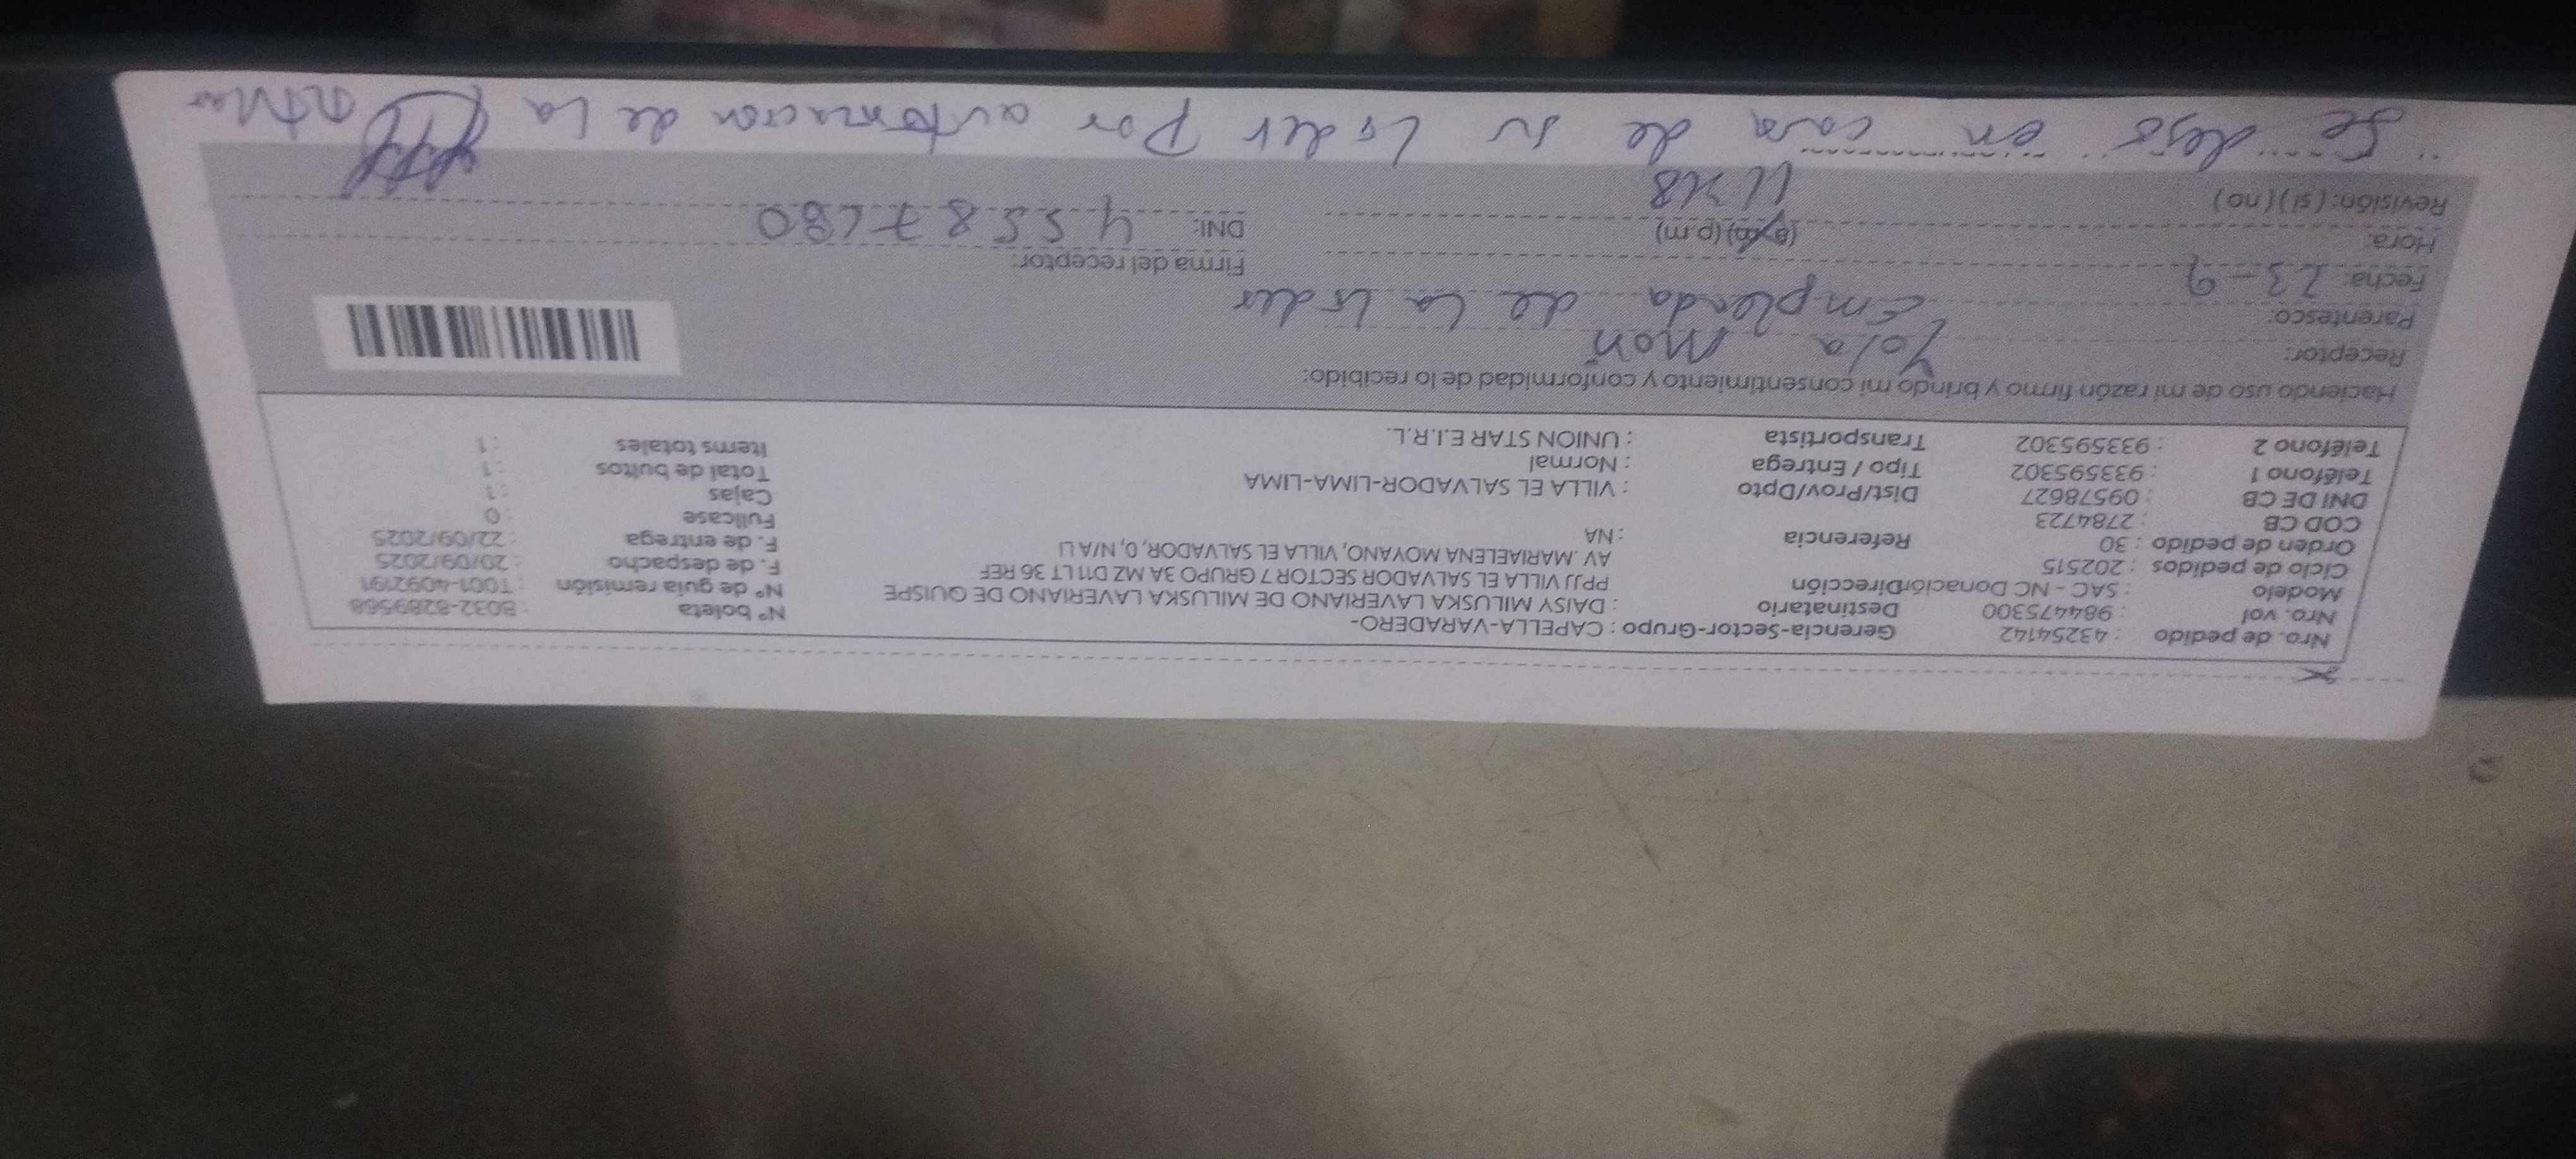 Nro. de pedido : 43254142 Gerencia-Sector-Grupo : CAPELLA-VARADERO- N° boleta : B032-8289568
Nro. vol : 984475300 Destinatario : DAISY MILUSKA LAVERIANO DE MILUSKA LAVERIANO DE QUISPE N° de guía remisión : T001-4092191
Modelo : SAC - NC Donación Dirección PPJJ VILLA EL SALVADOR SECTOR 7 GRUPO 3A MZ D11 LT 36 REF F. de despacho : 20/09/2025
Ciclo de pedidos : 202515 AV .MARIAELENA MOYANO, VILLA EL SALVADOR, 0, N/A LI F. de entrega : 22/09/2025
Orden de pedido : 30 Referencia : NA Fullcase : 0
COD CB : 2784723 Cajas : 1
DNI DE CB : 09578627 Dist/Prov/Dpto : VILLA EL SALVADOR-LIMA-LIMA Total de bultos : 1
Teléfono 1 : 933595302 Tipo / Entrega : Normal Items totales : 1
Teléfono 2 : 933595302 Transportista : UNION STAR E.I.R.L.
Haciendo uso de mi razón firmo y brindo mi consentimiento y conformidad de lo recibido:
Receptor: Yola Mori
Parentesco: Empleada de La Lider
Fecha: 23-9 Firma del receptor:
Hora: (a.m) (p.m) DNI: 45587680
Revisión: ( si ) ( no ) 11:18
Se dejo en casa de su Lider Por autorizacion de La